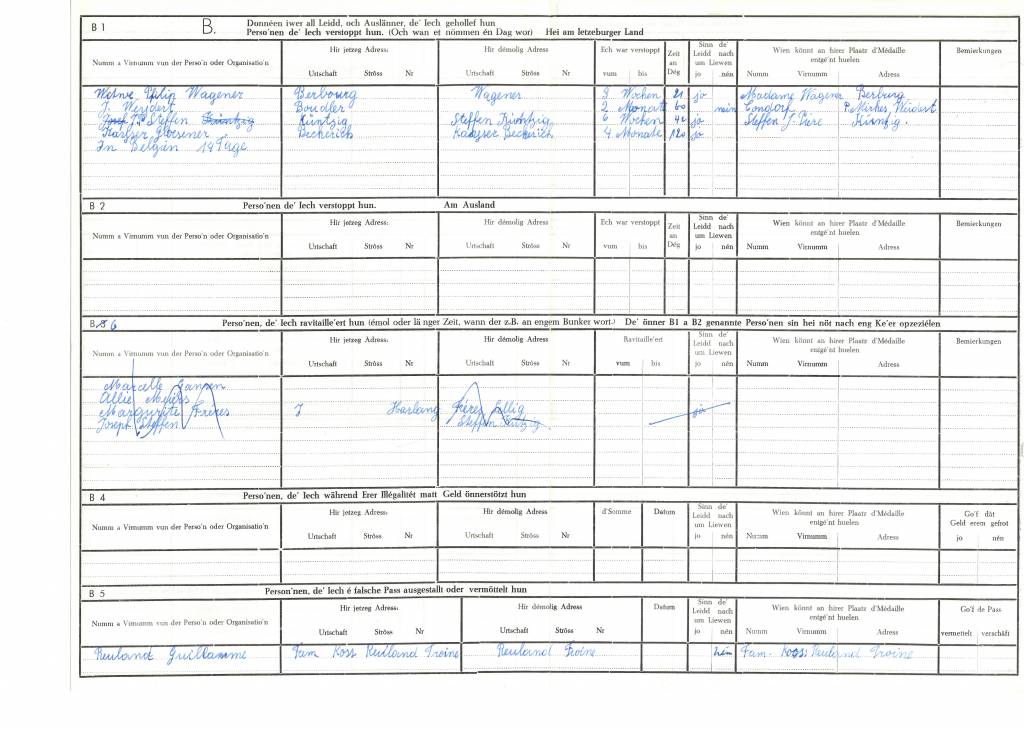 B 1 B. Donnéen iwer all Leidd, och Auslänner, de' Iech gehollef hun
Perso'nen de' Iech verstoppt hun. (Och wan et nömmen én Dag wor) Hei am letzeburger Land
Numm a Virnumm vun der Perso'n oder Organisatio'n
Hir jetzeg Adress: Urtschaft Ströss Nr
Hir démolig Adress Urtschaft Ströss Nr
Ech war verstoppt vum bis
Zeit an Dég
Sinn de' Leidd nach um Liewen jo nén
Wien könnt an hirer Plaatz d'Médaille entgé'nt huelen Numm Virnumm Adress
Bemierkungen
Wagener Berbourg Wagener 3 Wochen 21 jo Madame Wagener Berburg
J. Weydert Boudler 2 Monate 60 nein
Steffen Küntzig Steffen Küntzig 6 Wochen jo Steffen J-Piere
Kayser Gloesener Beckerich Kayser Beckerich 4 Monate 120 jo
In Belgien 14 Tage
B 2 Perso'nen de' Iech verstoppt hun. Am Ausland
Numm a Virnumm vun der Perso'n oder Organisatio'n
Hir jetzeg Adress: Urtschaft Ströss Nr
Hir démolig Adress Urtschaft Ströss Nr
Ech war verstoppt vum bis
Zeit an Dég
Sinn de' Leidd nach um Liewen jo nén
Wien könnt an hirer Plaatz d'Médaille entgé'nt huelen Numm Virnumm Adress
Bemierkungen
B 6 Perso'nen, de' Iech ravitaille'ert hun (émol oder länger Zeit, wann der z.B. an engem Bunker wort.) De' önner B1 a B2 genannte Perso'nen sin hei nöt nach eng Ke'er opzeziélen
Numm a Virnumm vun der Perso'n oder Organisatio'n
Hir jetzeg Adress: Urtschaft Ströss Nr
Hir démolig Adress Urtschaft Ströss Nr
Ravitaille'ert vum bis
Sinn de' Leidd nach um Liewen jo nén
Wien könnt an hirer Plaatz d'Médaille entgé'nt huelen Numm Virnumm Adress
Bemierkungen
Marcelle Jansen
Allie Meyers
Margurite Frères Harlang Frères jo
Joseph Steffen Steffen
B 4 Perso'nen, de' Iech während Erer Illégalitét matt Geld önnerstötzt hun
Numm a Virnumm vun der Perso'n oder Organisatio'n
Hir jetzeg Adress: Urtschaft Ströss Nr
Hir démolig Adress Urtschaft Ströss Nr
d'Somme
Datum
Sinn de' Leidd nach um Liewen jo nén
Wien könnt an hirer Plaatz d'Médaille entgé'nt huelen Numm Virnumm Adress
Go'f dât Geld erem gefrot jo nén
B 5 Person'nen, de' Iech é falsche Pass ausgestallt oder vermöttelt hun
Numm a Virnumm vun der Perso'n oder Organisatio'n
Hir jetzeg Adress: Urtschaft Ströss Nr
Hir démolig Adress Urtschaft Ströss Nr
Datum
Sinn de' Leidd nach um Liewen jo nén
Wien könnt an hirer Plaatz d'Médaille entgé'nt huelen Numm Virnumm Adress
Go'f de Pass vermettelt verschâft
Reuland Guillaume Fam Koss Reuland Troine Reuland Troine nén Fam. Koss Reuland Troine